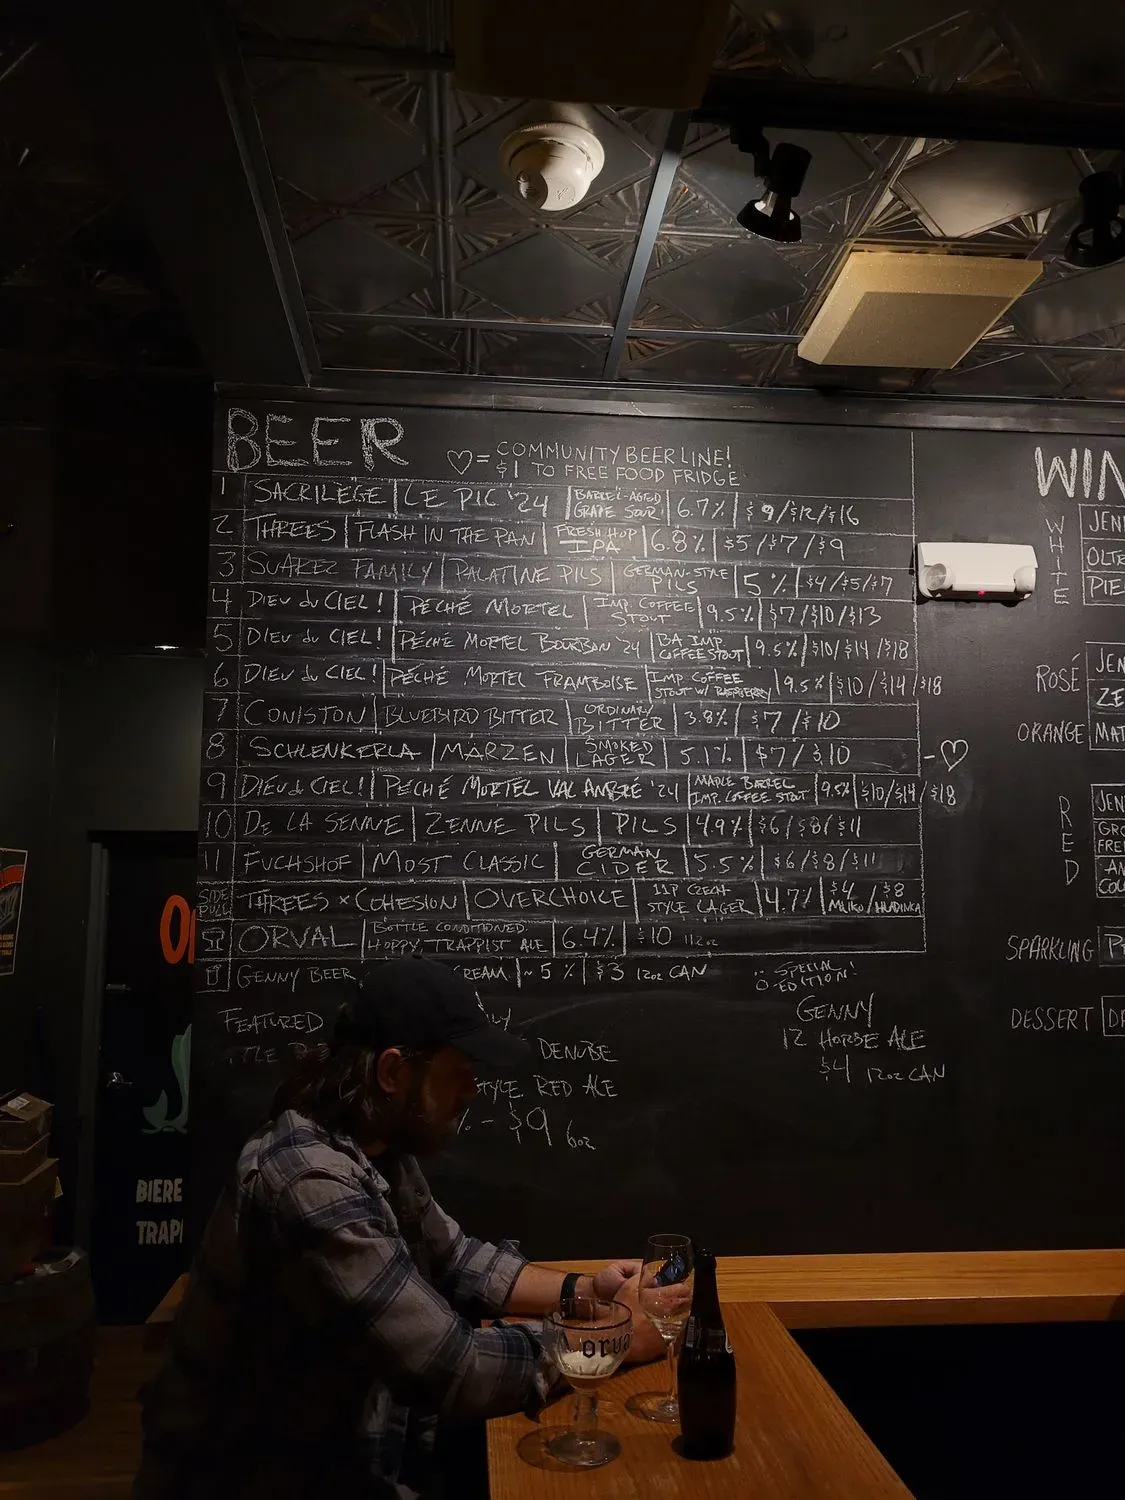 BEER
♡ = COMMUNITY BEER LINE!
$1 TO FREE FOOD FRIDGE
1 SACRILÈGE LE PIC '24 BARREL-AGED GRAPE SOUR 6.7% $9/$12/$16
2 THREES FLASH IN THE PAN FRESH HOP IPA 6.8% $5/$7/$9
3 SUAREZ FAMILY PALATINE PILS GERMAN-STYLE PILS 5% $4/$5/$7
4 DIEU du CIEL! PÉCHÉ MORTEL IMP. COFFEE STOUT 9.5% $7/$10/$13
5 DIEU du CIEL! PÉCHÉ MORTEL BOURBON '24 BA IMP COFFEE STOUT 9.5% $10/$14/$18
6 DIEU du CIEL! PÉCHÉ MORTEL FRAMBOISE IMP COFFEE STOUT W/ RASPBERRY 9.5% $10/$14/$18
7 CONISTON BLUEBIRD BITTER ORDINARY BITTER 3.8% $7/$10
8 SCHLENKERLA MÄRZEN SMOKED LAGER 5.1% $7/$10 -♡
9 DIEU du CIEL! PÉCHÉ MORTEL VAL AMBRÉ '24 MAPLE BARREL IMP. COFFEE STOUT 9.5% $10/$14/$18
10 DE LA SENNE ZENNE PILS PILS 4.9% $6/$8/$11
11 FUCHSHOF MOST CLASSIC GERMAN CIDER 5.5% $6/$8/$11
SIDE PULL THREES x COHESION OVERCHOICE 11P CZECH-STYLE LAGER 4.7% $4 MLIKO/$8 HLADINKA
ORVAL BOTTLE CONDITIONED. HOPPY, TRAPPIST ALE 6.4% $10 11.2oz
GENNY BEER REAM ~5% $3 12oz CAN
SPECIAL EDITION!
GENNY
12 HORSE ALE
$4 12oz CAN
FEATURED
DENUBE
STYLE RED ALE
% - $9 6oz
WIN
WHITE
JEN
OLTR
PIE
ROSÉ
JEN
ZE
ORANGE MAT
RED
JEN
GRO
FRE
AN
COL
SPARKLING P
DESSERT
BIERE
TRAP
orva